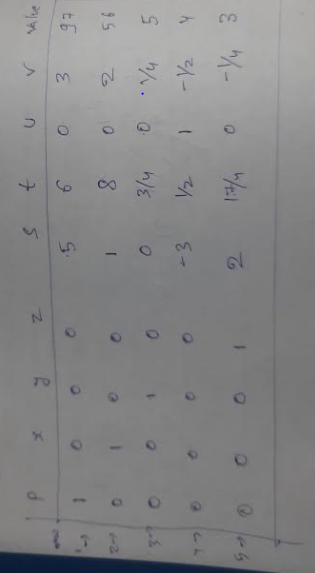 P x y z S t u v value
1 1 0 0 0 .5 6 0 3 97
2 0 1 0 0 1 8 0 2 56
3 0 0 1 0 0 3/4 0 1/4 5
4 0 0 0 0 -3 1/2 1 -1/2 4
5 0 0 0 1 2 17/4 0 -1/4 3